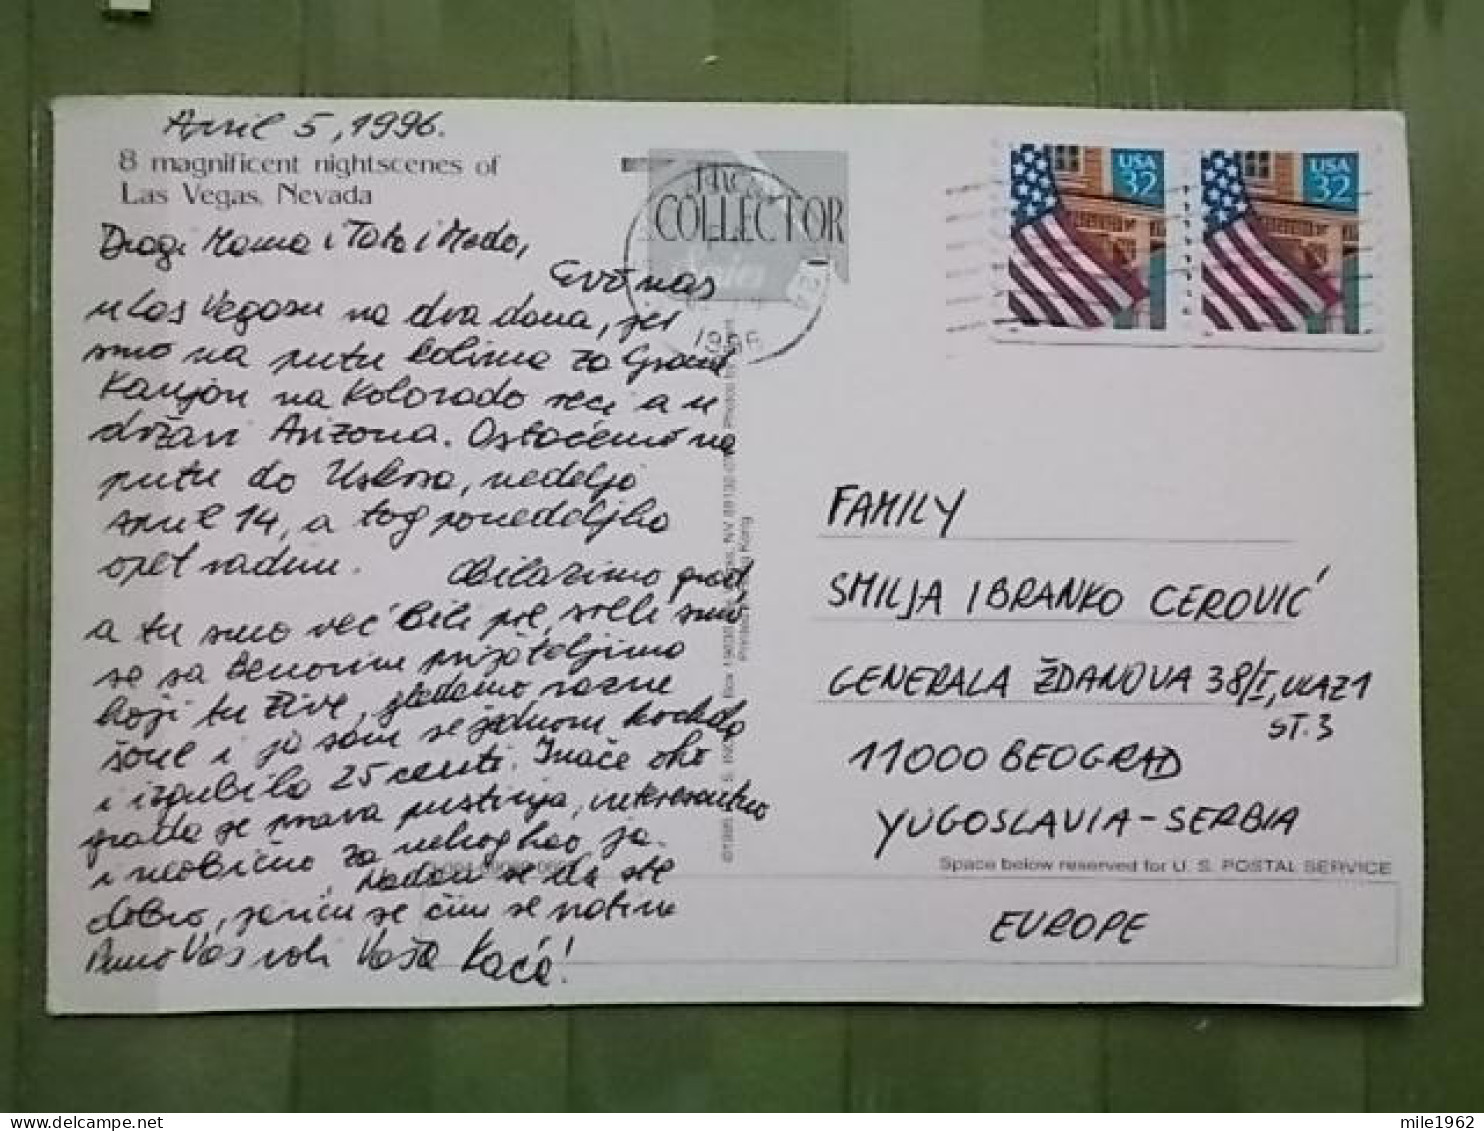 April 5, 1996.
8 magnificent nightscenes of
Las Vegas, Nevada
Dragi Mama i Tata i Medo,
Evo nas
u Las Vegasu na dva dana, jer
smo na putu kolima za Grand
Kanjon na Kolorado reci a u
državi Arizona. Ostaćemo na
putu do Uskrsa, nedelja
april 14, a tog ponedeljka
opet radim.
Obilazimo grad
a tu smo već bili pre, sreli smo
se sa prijateljima
koji tu žive, gledamo razne
šoue i ja sam se jednom kockala
i izgubila 25 centi. Inače oko
grada je prava pustinja, interesantno
i neobično za nekog kao ja.
Nadam se da ste
dobro, javiću se čim se vratim
Puno Vas voli Vaša Kaća!
COLLECTOR
Series
1996
USA
32
USA
32
FAMILY
SMILJA I BRANKO CEROVIĆ
GENERALA ŽDANOVA 38/I, ULAZ 1
ST. 3
11000 BEOGRAD
YUGOSLAVIA - SERBIA
Space below reserved for U. S. POSTAL SERVICE
EUROPE
mile1962